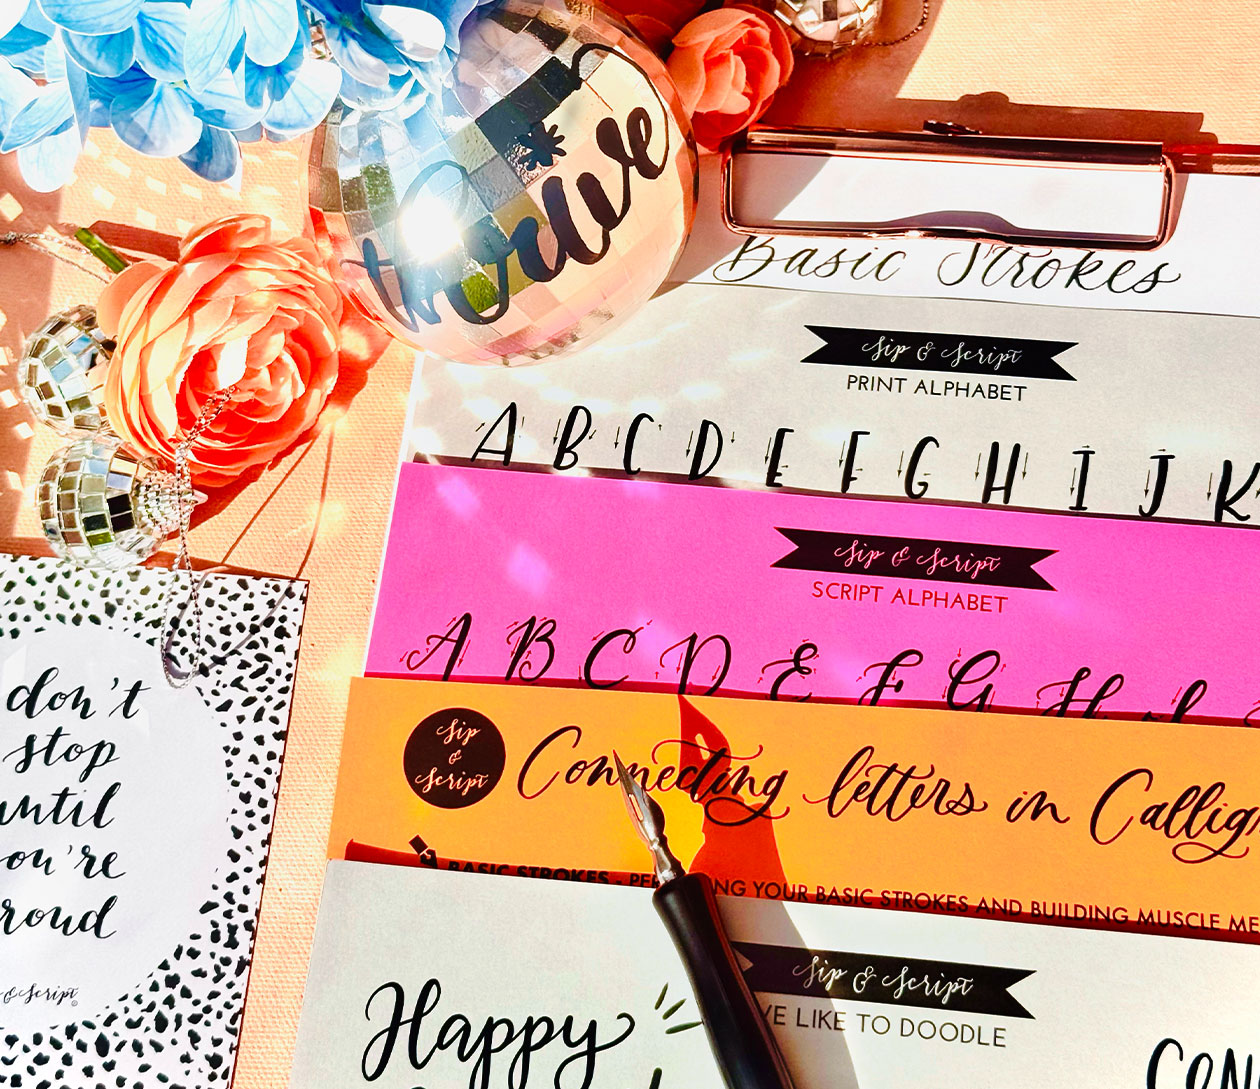 Basic Strokes
Sip & Script
PRINT ALPHABET
A B C D E F G H I J K
Sip & Script
SCRIPT ALPHABET
A B C D E F G H
Sip
&
Script
Connecting letters in Callig
BASIC STROKES - PER NG YOUR BASIC STROKES AND BUILDING MUSCLE ME
Sip & Script
VE LIKE TO DOODLE
Happy
Con
don't
stop
until
you're
roud
& Script